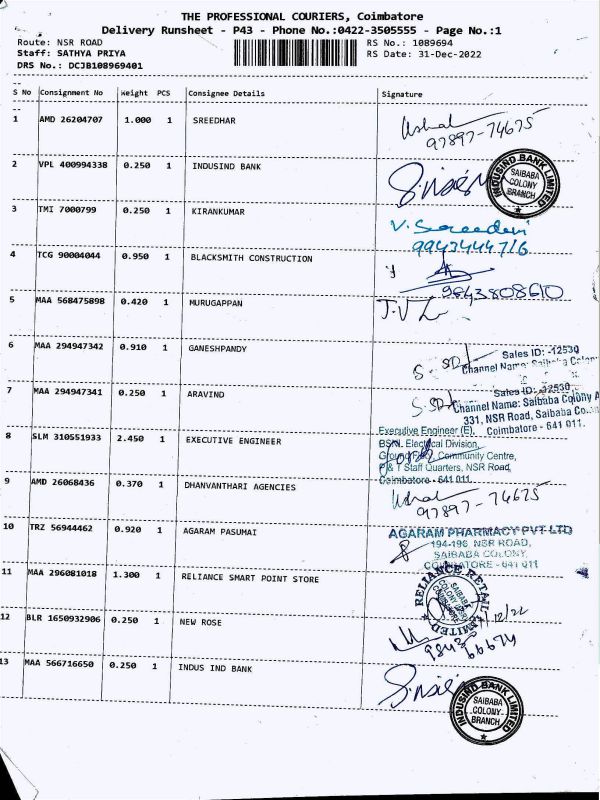 THE PROFESSIONAL COURIERS, Coimbatore
Delivery Runsheet - P43 - Phone No.:0422-3505555 - Page No.:1
Route: NSR ROAD RS No.: 1089694
Staff: SATHYA PRIYA RS Date: 31-Dec-2022
DRS No.: DCJB108969401
S No Consignment No Weight PCS Consignee Details Signature
1 AMD 26204707 1.000 1 SREEDHAR
97897-74675
2 VPL 400994338 0.250 1 INDUSIND BANK
INDUSIND BANK LIMITED
SAIBABA
COLONY
BRANCH
3 TMI 7000799 0.250 1 KIRANKUMAR
V. Sreedevi
9943444716
4 TCG 90004044 0.950 1 BLACKSMITH CONSTRUCTION
9843808610
5 MAA 568475898 0.420 1 MURUGAPPAN
6 MAA 294947342 0.910 1 GANESHPANDY
Sales ID: -12530
Channel Name: Saibaba Colony
7 MAA 294947341 0.250 1 ARAVIND
Sales ID: -12530
Channel Name: Saibaba Colony
331, NSR Road, Saibaba
Coimbatore - 641 011.
8 SLM 310551933 2.450 1 EXECUTIVE ENGINEER
Executive Engineer (E),
BSNL Electrical Division,
Community Centre,
P & T Staff Quarters, NSR Road,
Coimbatore - 641 011
9 AMD 26068436 0.370 1 DHANVANTHARI AGENCIES
97897-74675
10 TRZ 56944462 0.920 1 AGARAM PASUMAI
AGARAM PHARMACY PVT LTD
194-196, NSR ROAD,
SAIBABA COLONY,
COIMBATORE - 641 011
11 MAA 296081018 1.300 1 RELIANCE SMART POINT STORE
RELIANCE RETAIL LIMITED
SAIBABA
COLONY
12 BLR 1650932906 0.250 1 NEW ROSE
13 MAA 566716650 0.250 1 INDUS IND BANK
INDUSIND BANK LIMITED
SAIBABA
COLONY
BRANCH